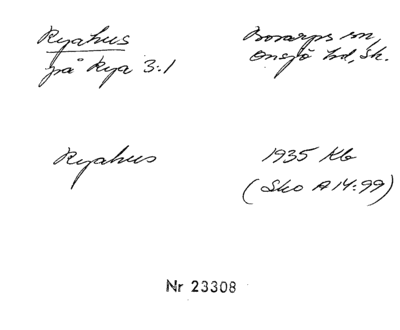 Ryahus
på Rya 3:1
Bosarps sn,
Onsjö hd, Sk.
Ryahus
1935 Kb
(Sko A14:99)
Nr 23308